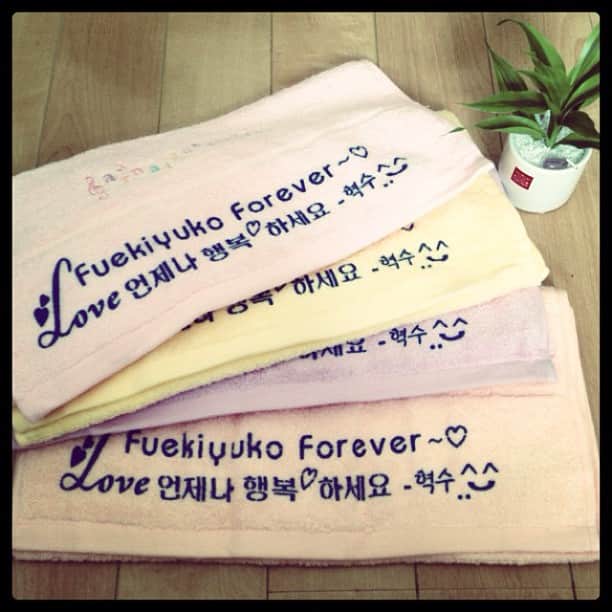 Fuekiyuko Forever~♡
Love 언제나 행복♡하세요 -혁수 ^^
나 행복 하세요 -혁수 ^^
하세요 -혁수 ^^
Fuekiyuko Forever~♡
Love 언제나 행복♡하세요 -혁수 ^^